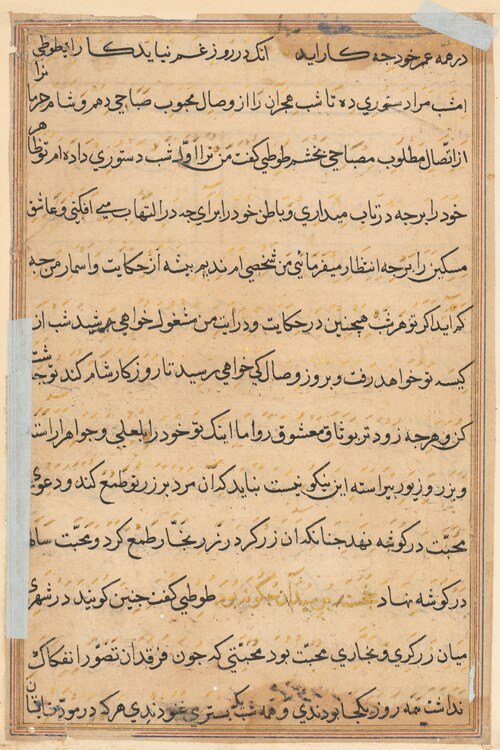 در همه عمر خود چه کار اید انک در روز غم نیاید کار ای طوطی
امشب مرا دستوری ده تا شب هجران را از وصال محبوب صباحی دهم و شام حرما
از اتصال مطلوب مصباحی بخشم طوطی کفت من ترا اول شب دستوری داده ام تو
خود را بر چه در تاب میداری و باطن خود را برای چه در التهاب می افکنی و عاشق
مسکین را بر چه انتظار میفرمائی من شخصی ام ندیم پیشه از حکایت و اسمار من چه
کم آید اکر تو هر شب همچنین در حکایت و درایت من مشغول خواهی شد شب از
کیسه تو خواهد رفت و بروز وصال کی خواهی رسید تا روز کار شام کند تو
کن و هرچه زودتر بوثاق معشوق رو اما اینک تو خود را بلعلی و جواهر اراسته
و بزر و زیور پیراسته این نیکو نیست نباید که ان مرد بر زر تو طمع کند و دعوی
محبت در کوشه نهد چنانکه ان زرکر در زر نجار طمع کرد و محبت
در کوشه نهاد طوطی کفت چنین کویند در شهری
میان زرکری و نجاری محبت بود محبتی که چون فرقدان تصور انفکاک
نداشت همه روز یکجا بودندی و همه شب یک بستری غنودندی هر که در مودت